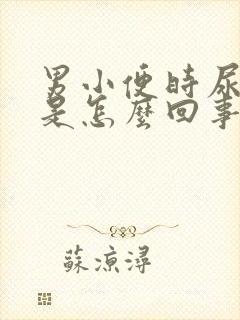 男小便時尿
是怎麼回事
蘇涼潯